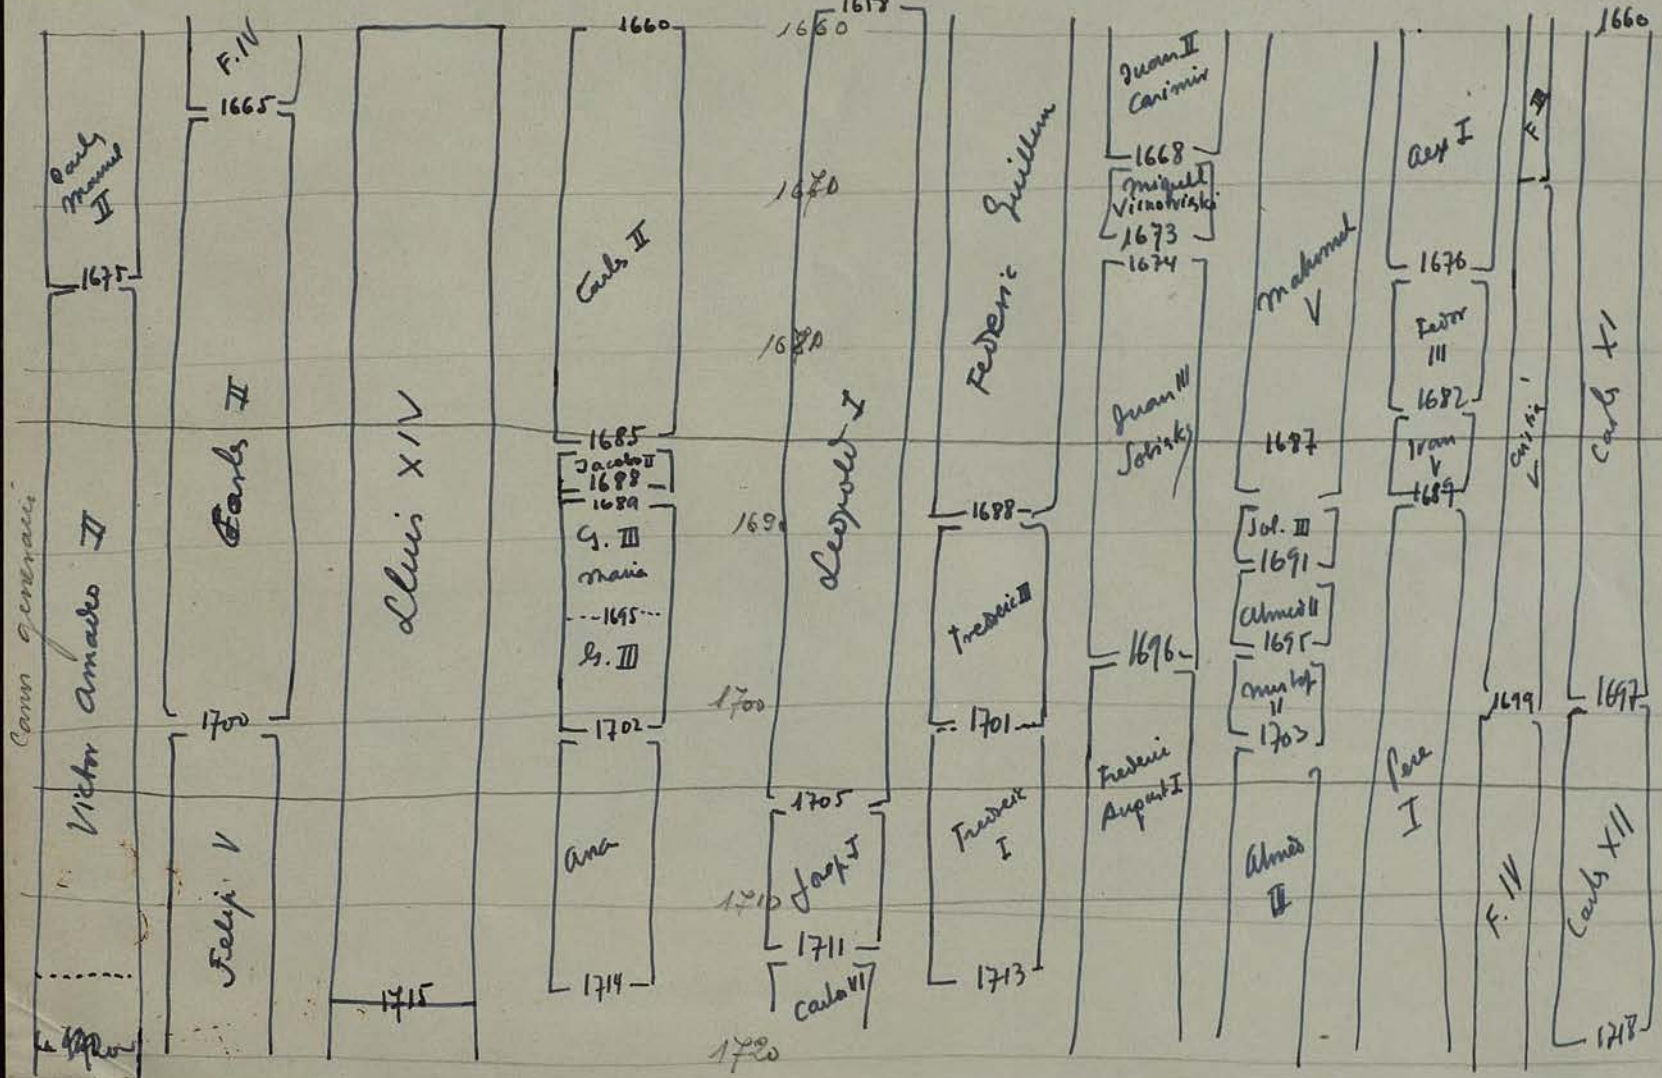 1660
1658
1660
1660
F. IV
1665
Carls
Manuel
II
1675
Victor Amadeo II
Carls II
1700
Felip V
Lluis XIV
1715
Carls II
1685
Jacobo II
1688
1689
G. III
Maria
---1695---
G. III
1702
Ana
1714
1670
1680
1690
1700
1710
1720
Leopold I
1705
Josep I
1711
Carlos VI
Federic Guillem
1688
Frederic III
1701
Frederic
I
1713
Juan II
Casimir
1668
Miquel
Visnoviski
1673
1674
Juan III
Sobieski
1696
Frederic
August I
Mahomet
V
1687
Sol. III
1691
Ahmed II
1695
Mustaf
II
1703
Ahmed
III
Alex I
1676
Fedor
III
1682
Ivan
V
1689
Pere
I
F. III
1699
F. IV
Carls XI
1697
Carls XII
1718